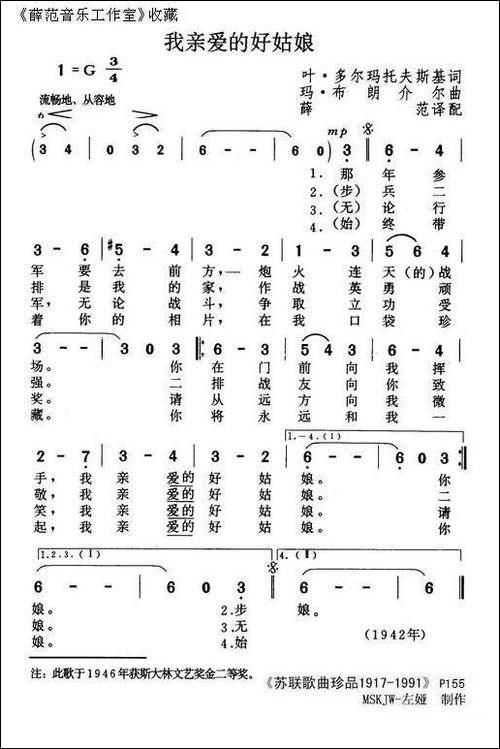 《薛范音乐工作室》收藏
我亲爱的好姑娘
1=G 3/4
叶·多尔玛托夫斯基词
玛·布朗介尔曲
薛范译配
流畅地、从容地
mp
(3 4 | 0 3 4 3 2 | 6 - - | 6 - 0) 3 | 6 - 4
1. 那年参
2.(步)兵二
3.(无)论行
4.(始)终带
3 - 6 | #5 - 4 | 3 - 2 | 1 - 3 | 5 6 4
军要去前方,—炮火连天(的)战
排是我的家,作战英勇顽
军,无论战斗,争取立功受
着你的相片,在我口袋珍
3 - - | 3 0 3 | 6 - 6 | 6 - 3 | 6 - 4
场。你在门前向我挥
强。二排战友向你致
奖。请从远方向我微
藏。你将永远和我一
1.-4.(I)
2 - 7 | 3 - 3 | 4 - 3 | 6 - - | 6 0 3
手,我亲爱的好姑娘。你
敬,我亲爱的好姑娘。二
笑,我亲爱的好姑娘。请
起,我亲爱的好姑娘。你
1.2.3.(Ⅱ) 4.(Ⅱ)
6 - - | 6 0 3 | 6 - - | 6 - 0
娘。2.步 娘。
娘。3.无
娘。4.始
(1942年)
注:此歌于1946年获斯大林文艺奖金二等奖。
《苏联歌曲珍品1917-1991》 P155
MSKJW-左娅 制作